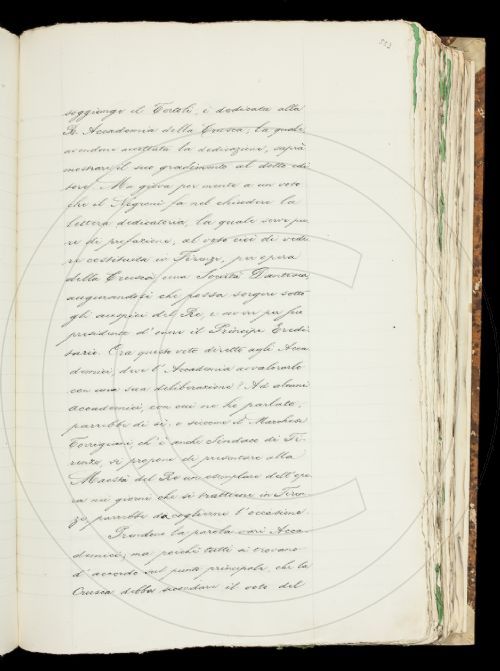 553
soggiunge il Tortoli, è dedicata alla
R. Accademia della Crusca, la quale,
avendone accettata la dedicazione, saprà
mostrare il suo gradimento al dotto edi
tore. Ma giova por mente a un voto
che il Negroni fa nel chiudere la
lettera dedicatoria, la quale serve pu
re di prefazione, al voto cioè di vede
re costituita in Firenze, per opera
della Crusca una Società Dantesca,
augurandosi che possa sorgere sotto
gli auspici del Re, e avere per suo
presidente d'onore il Principe Eredi
tario. Ora questo voto diretto agli Acca
demici, deve l'Accademia avvalorarlo
con una sua deliberazione? Ad alcuni
accademici, con cui ne ho parlato,
parrebbe di sì, e siccome il Marchese
Torrigiani, ch'è anche Sindaco di Fi
renze, si propone di presentare alla
Maestà del Re un esemplare dell'ope
ra nei giorni che si tratterrà in Firen
ze parrebbe da cogliere l'occasione.
Prendono la parola varî Acca-
demici, ma poichè tutti si trovano
d'accordo sul punto principale, che la
Crusca debba secondare il voto del